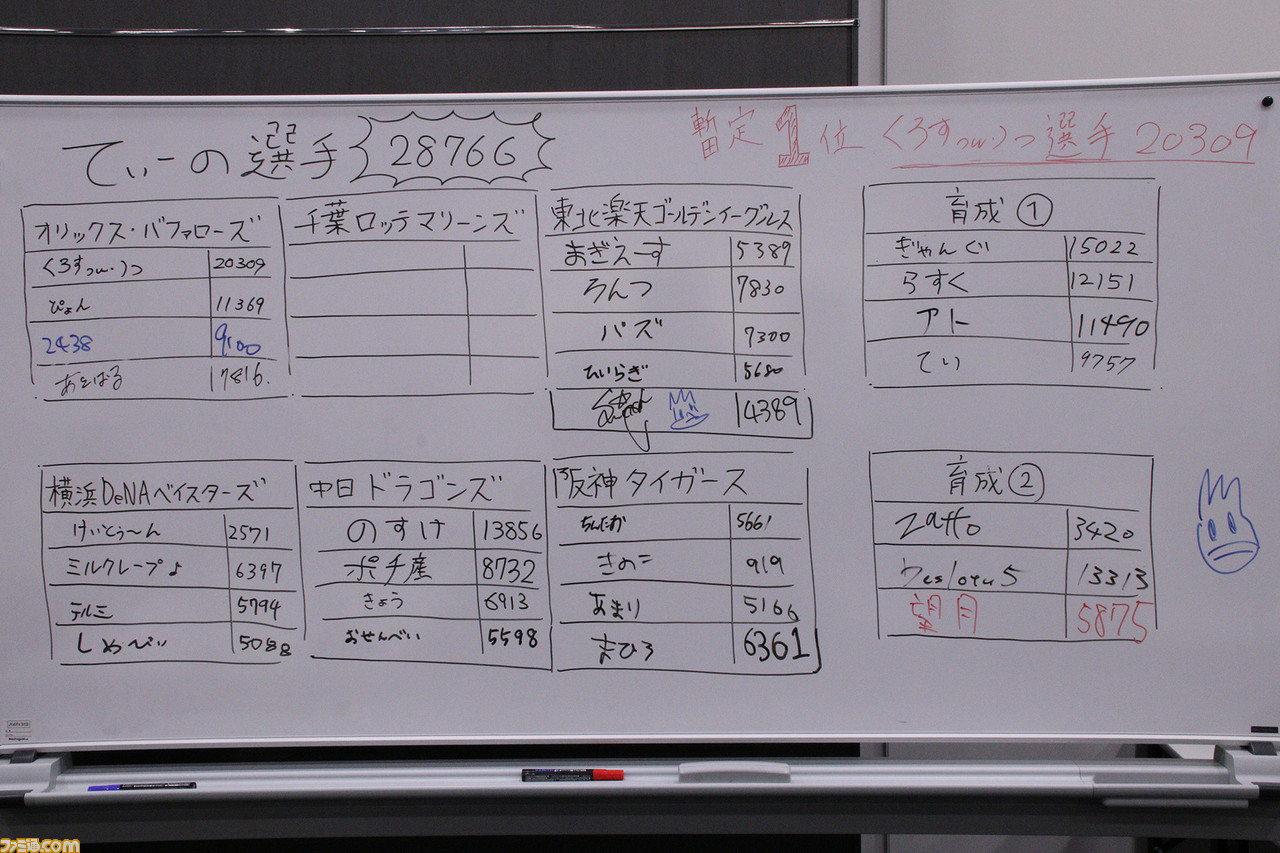 てぃーの選手 28766
暫定1位 くろすっw・)っ選手 20309
オリックス・バファローズ
くろすっw・)っ 20309
ぴょん 11369
2438 9100
あせばる 17816
千葉ロッテマリーンズ
東北楽天ゴールデンイーグルス
まぎえーす 5389
ろんつ 7830
バズ 7300
ひいらぎ 5680
14389
育成①
ぎゃんぐ 15022
らすく 12151
アト 11490
てぃ 9757
横浜DeNAベイスターズ
けいとぅーん 2571
ミルクレープ♪ 6397
テルミ 5794
しゅべぃ 5088
中日ドラゴンズ
のすけ 13856
ポチ産 8732
きょう 6913
おせんべい 5598
阪神タイガース
ちんにお 5661
きのこ 919
あまり 5166
まひろ 6361
育成②
zatto 3420
13313
望月 5875
ファミ通.com